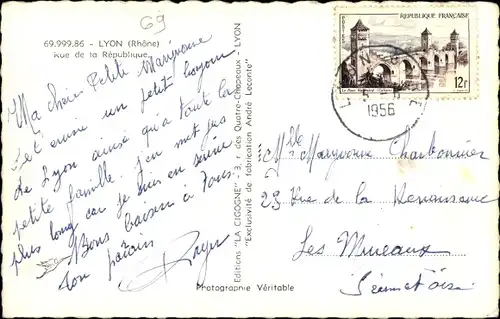 69
69.999.86 - LYON (Rhône)
Rue de la République
Ma chère Petite Maryvonne
un petit bonjour
de Lyon ainsi qu'a toute la
petite famille. J'en met pas
plus long car je suis en
Bons baisers à Tous.
Ton parrain
Roger
Editions "LA CIGOGNE" - 3, r. des Quatre-Chapeaux - LYON
"Exclusivité de fabrication André Leconte"
Photographie Véritable
POSTES
REPUBLIQUE FRANÇAISE
12F
1956
Mlle Maryvonne Charbonnier
23 Rue de la Renaissance
Les Mureaux
Seine et Oise